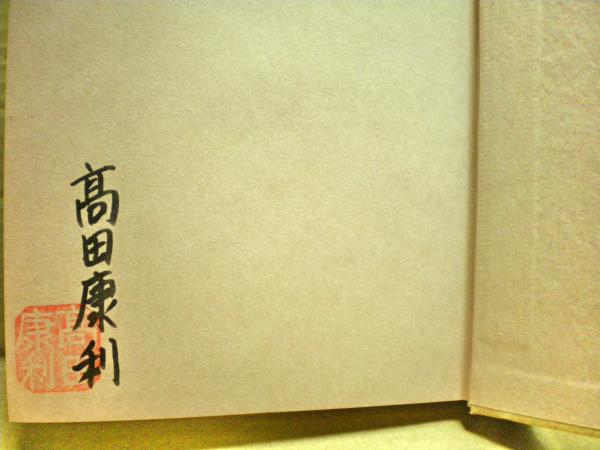 髙田康利
髙田
康利